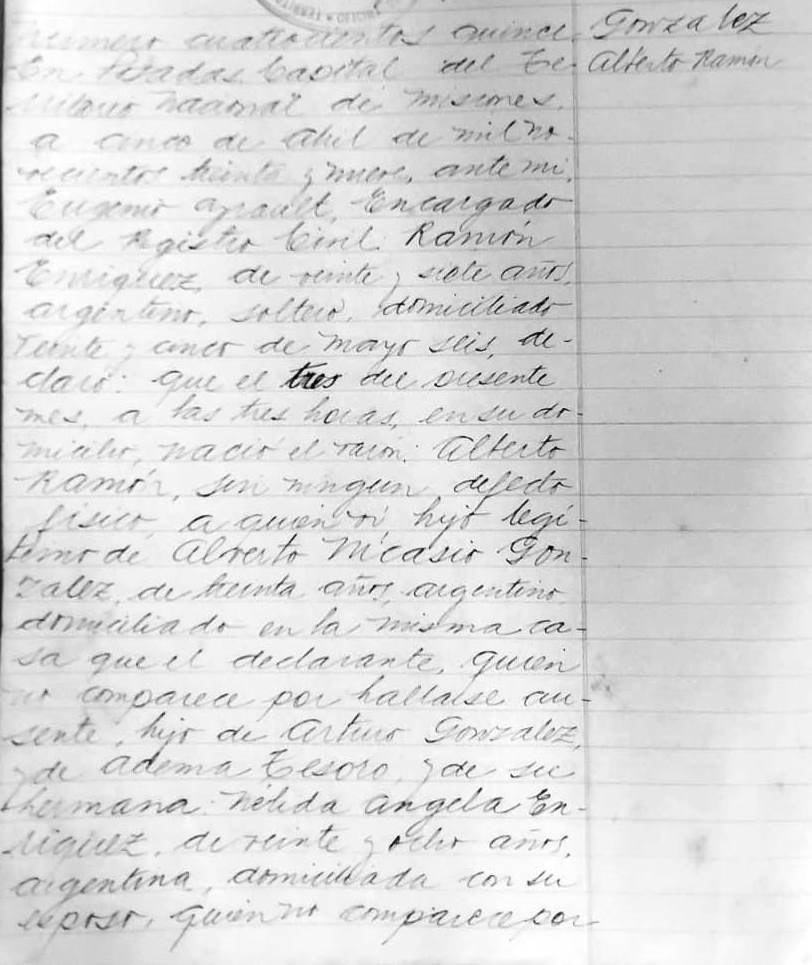 Número cuatrocientos quince.
González
Alberto Ramón
En Posadas Capital del Te-
rritorio Nacional de Misiones,
a cinco de Abril de mil no-
vecientos treinta y nueve, ante mí,
Eugenio Encargado
del Registro Civil: Ramón
Enriquez, de veinte y siete años,
argentino, soltero, domiciliado
Veinte y cinco de Mayo seis, de-
claró: que el tres del presente
mes, a las tres horas, en su do-
micilio, nació el varón: Alberto
Ramón, sin ningún defecto
físico, a quien ví hijo legí-
timo de Alberto Nicasio Gon-
zalez, de treinta años, argentino
domiciliado en la misma ca-
sa que el declarante, quien
no comparece por hallarse au-
sente, hijo de Arturo Gonzalez,
y de Adema Tesoro, y de su
hermana: Nélida Angela En-
riquez, de veinte y ocho años,
argentina, domiciliada con su
esposo, quien no comparece por